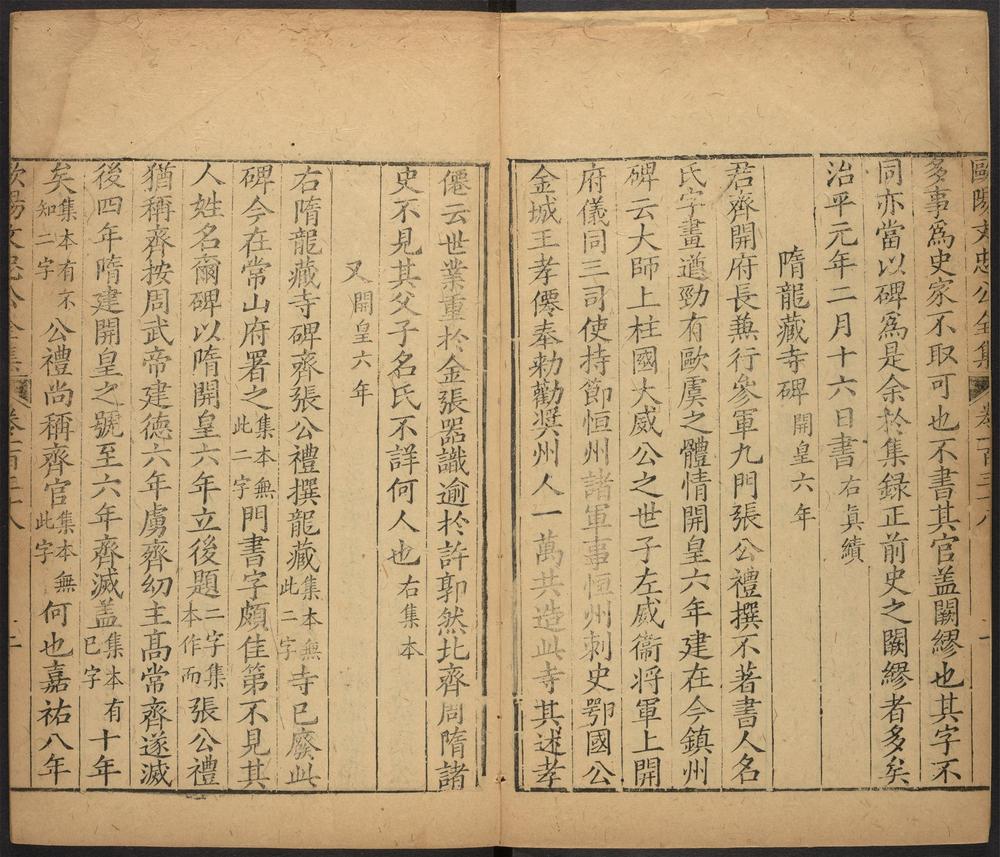 歐陽文忠公全集 卷一百三十八
多事為史家不取可也不書其官盖闕繆也其字不
同亦當以碑為是余於集録正前史之闕繆者多矣
治平元年二月十六日書右真蹟
隋龍藏寺碑開皇六年
君齊開府長兼行參軍九門張公禮撰不著書人名
氏字畫遒勁有歐虞之體情開皇六年建在今鎮州
碑云大師上柱國大威公之世子左威衞将軍上開
府儀同三司使持節恒州諸軍事恒州刺史鄂國公
金城王孝僊奉勅勸奬州人一萬共造此寺其述孝
僊云世業重於金張器識逾於許郭然北齊周隋諸
史不見其父子名氏不詳何人也右集本
又開皇六年
右隋龍藏寺碑齊張公禮撰龍藏集本無此二字寺已廢此
碑今在常山府署之集本無此二字門書字頗佳第不見其
人姓名爾碑以隋開皇六年立後題二字集本作而張公禮
猶稱齊按周武帝建德六年虜齊幼主高常齊遂滅
後四年隋建開皇之號至六年齊滅盖集本有已字十年
矣集本有不知二字公禮尚稱齊官集本無此字何也嘉祐八年
歐陽文忠公全集 卷一百三十八